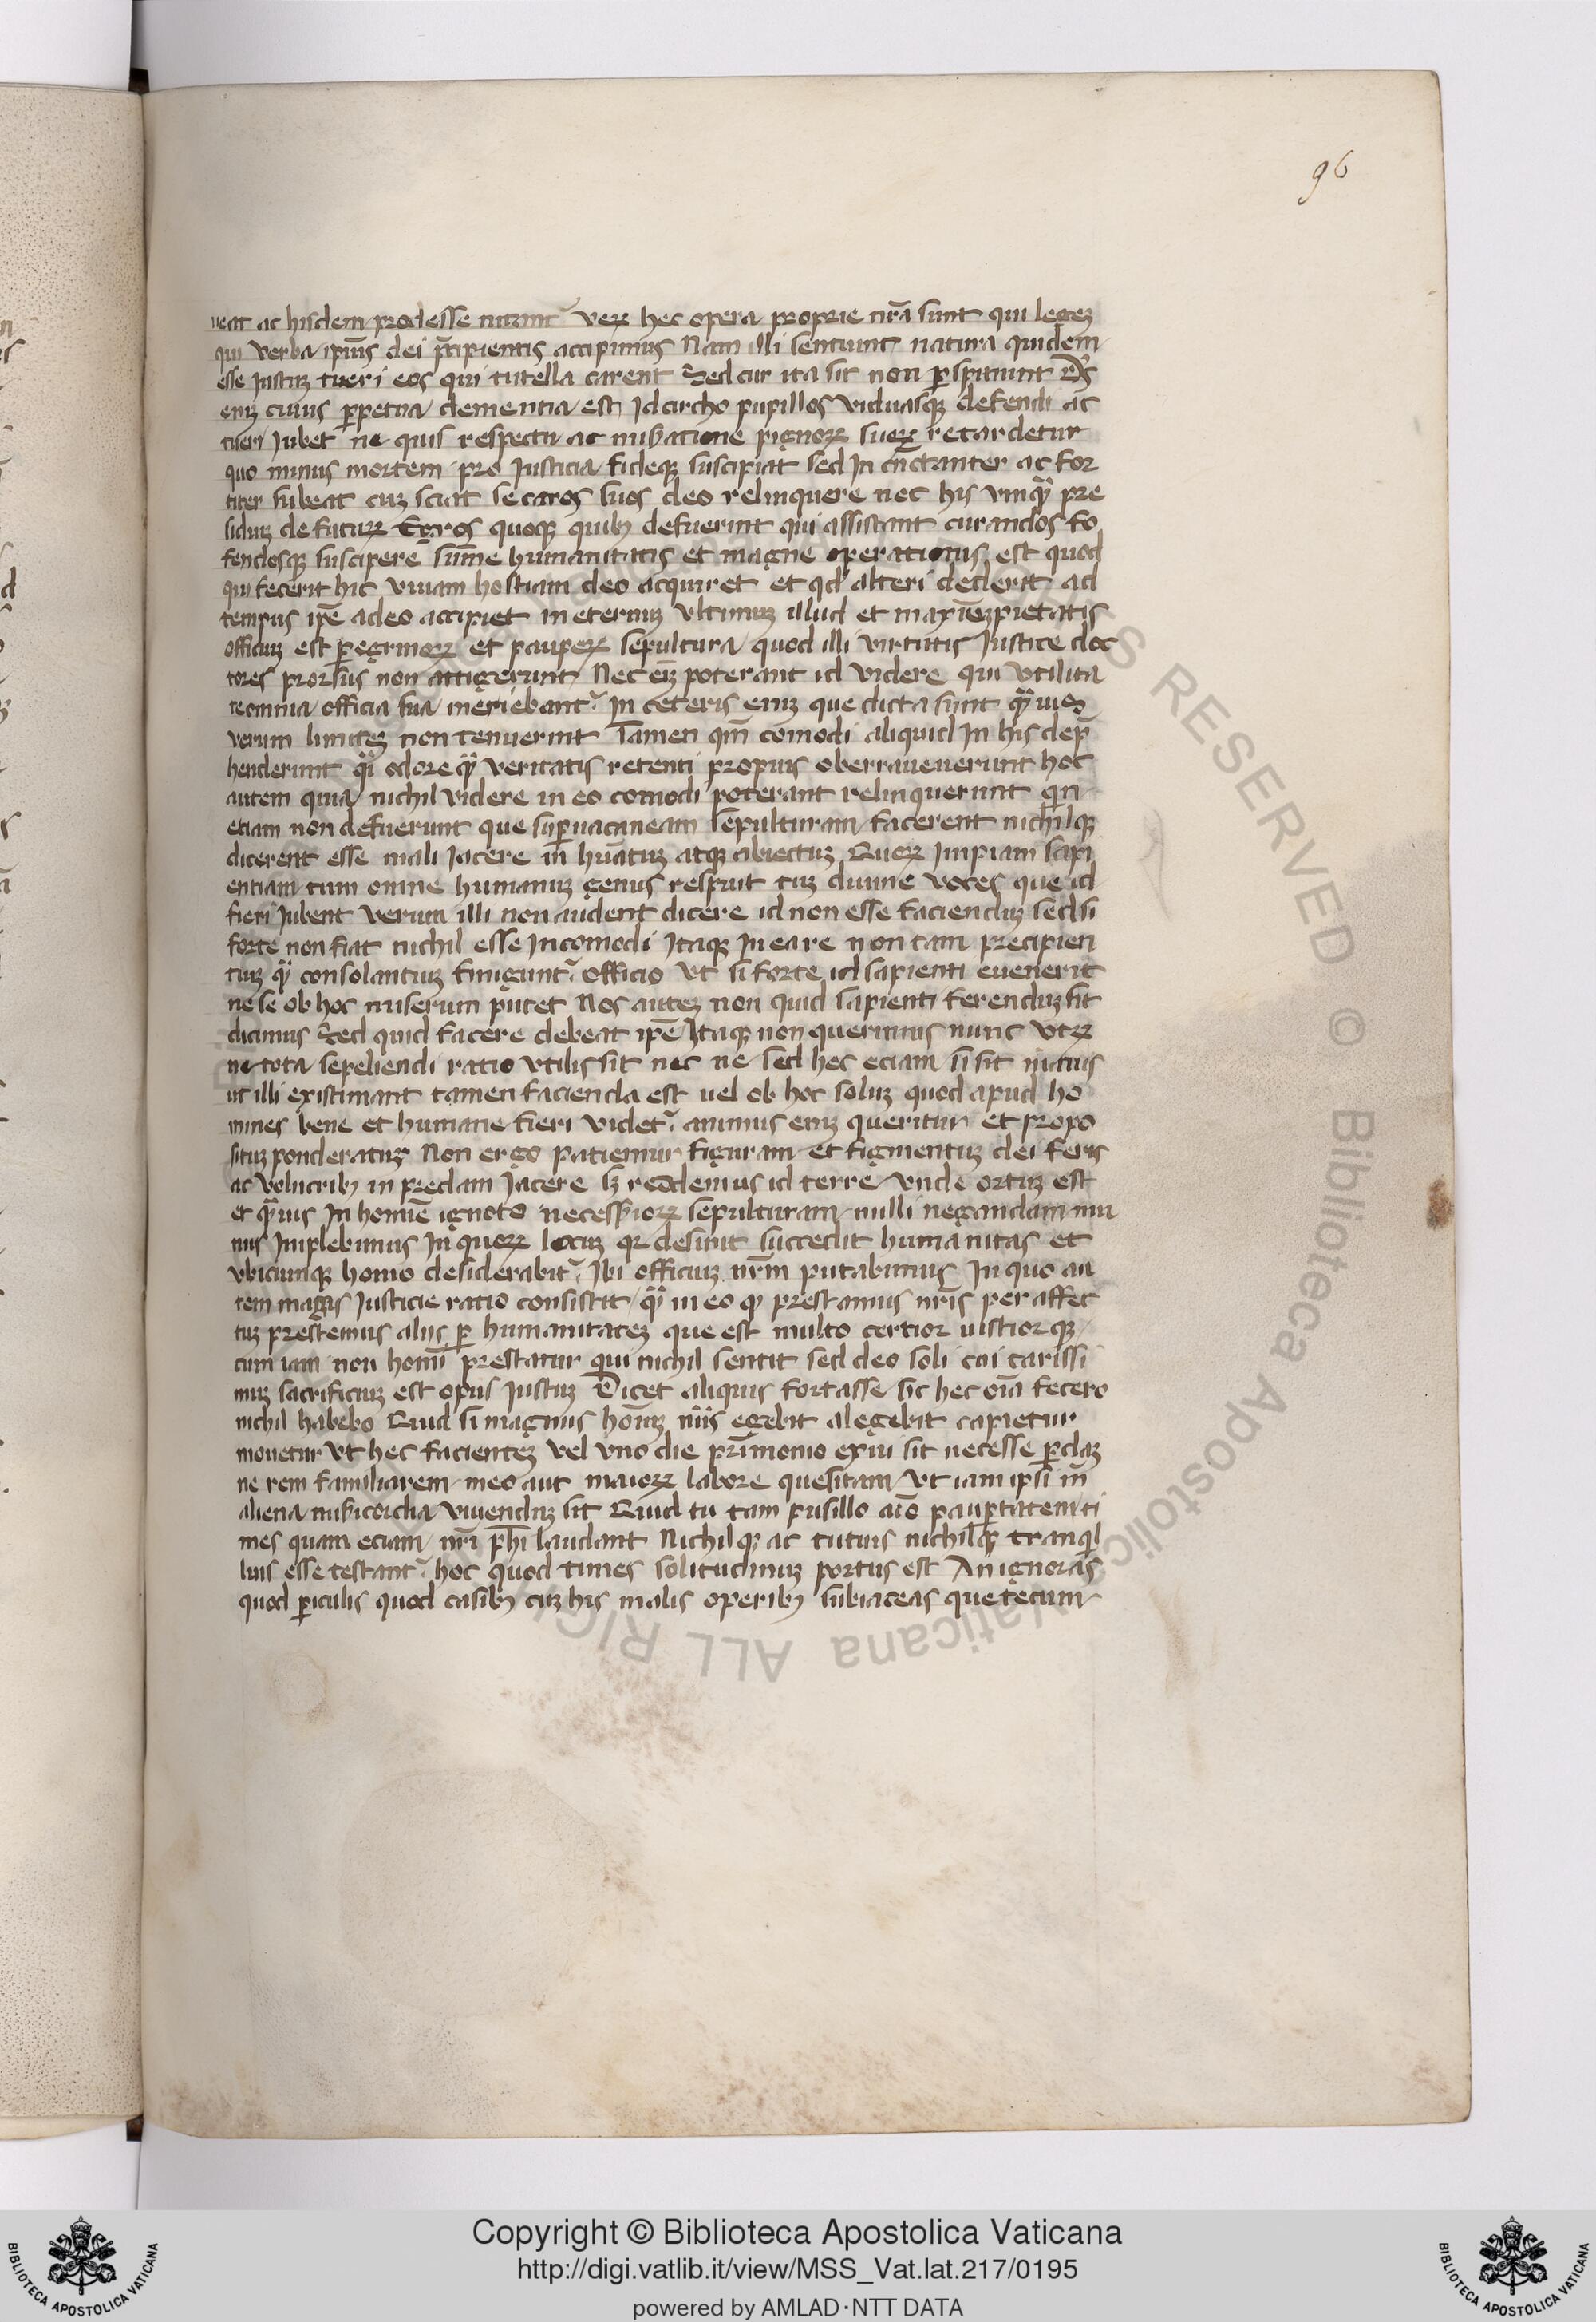 96
ueat ac hisdem prodesse nitunt᷑ veꝝ hec opera proprie nr̄a sunt qui legeꝫ
qui verba ipīus dei p̄cipientis accipimus Nam illi sentiunt natura quidem
esse justuꝫ tueri eos qui tutella carent Sed cur ita sit non ꝑspitiunt D̄s
enīꝫ cuius ꝑpetua clementia est jdcircho pupillos viduasqꝫ defendi ac
tueri jubet ne quis respectu ac mis̄atione pignoꝝ suoꝝ retardetur
quo minus mortem pro justicia fideqꝫ suscipiat sed jn cūctanter ac for
titer subeat cuꝫ sciat se caros suos deo relinquere nec his vnqᷓꝫ pre
sidiuꝫ defuturꝝ Egros quoqꝫ quibꝫ defuerint qui assistant curandos fo
fendosqꝫ suscipere sūme humanitatis et magne operationis est quod
qui fecerit hic viuam hostiam deo acquiret et qd' alteri dederit ad
tempus ip̄e adeo accipiet in eternuꝫ vltimuꝫ illud et maxīuꝫ pietatis
officiuꝫ est ꝑegrinoꝝ et paupeꝝ sepultura quod illi virtutis justice doc
tores prorsus non attigerunt Nec eīꝫ poterant id videre qui vtilita
te omnia officia sua meriebant᷑ jn ceteris eniꝫ que dicta sunt qᷓꝫuis
verum limiteꝫ non tenuerint Tamen qm̄ comodi aliquid jn his dep̄
henderunt qͣi odore qͦdā veritatis retenti propius oberraueuerunt hoc
autem quia nichil videre in eo comodi poterant relinquerunt qͥn
etiam non defuerunt que suꝑuacaneam sepulturam facerent nichilqꝫ
dicerent esse mali jacere in hūatuꝫ atqꝫ abiectuꝫ Quoꝝ jmpiam sapi
entiam tum omne humanuꝫ genus respuit tuꝫ diuine voces que id
fieri jubent verum illi non audent dicere id non esse faciendūꝫ sed si
forte non fiat nichil esse jncomodi jtaqꝫ jn ea re non tam precipien
tiuꝫ qᷓꝫ consolantiuꝫ fungunt᷑ officio vt si forte id sapienti euenerit
ne se ob hoc miserum putet Nos auteꝫ non quid sapienti ferenduꝫ sit
dicimus Sed quid facere debeat ip̄e jtaqꝫ non querimus nunc vtꝝ
ne tota sepeliendi ratio vtilis sit nec ne sed hec eciam si sit jnutiis
ut illi existimant tamen facienda est uel ob hoc soluꝫ quod apud ho
mines bene et humane fieri videt᷑ animus eniꝫ queritur et propo
situꝫ ponderatur Non ergo patiemur figuram et figmentuꝫ dei feris
ac volucribꝫ in predam jacere sꝫ reddemus id terre vnde ortuꝫ est
et qᷓꝫuis jn homīe ignoto necess̄ioꝝ sepulturam nulli negandam mu
nus jmplebimus jn quoꝝ locuꝫ qꝛ desinit succedit humanitas et
vbicunqꝫ homo desiderabit᷑ jbi officiuꝫ nr̄m putabimus jn quo au
tem magis justicie ratio consistit qᷓꝫ in eo qꝫ prestamus nr̄is per affec
tuꝫ prestemus alijs ꝑ humanitateꝫ que est multo certior iustiorqꝫ
cum iam non homī prestatur qui nichil sentit sed deo soli cui carissi
muꝫ sacrificiuꝫ est opus justuꝫ Dicet aliquis fortasse sic hec oīa fecero
nichil habebo Quid si magnus homīꝫ nūs egebit alegebit capietur
mouetur vt hec facienteꝫ vel vno die pr̄imonio exui sit necesse ꝑdaꝫ
ne rem familiarem meo aut maioꝝ labore quesitam vt iam ipsi in
aliena mis̄icordia viuenduꝫ sit Quid tu tam pusillo aīo pauꝑtatem ti
mes quam eciam nr̄i ph̄i laudant Nichilqꝫ ac tutius nichilqꝫ tranqͥl
lius esse testant᷑ hoc quod times solitudinuꝫ portus est An ignoras
quod ꝑiculis quod casibꝫ cuꝫ his malis operibꝫ subiaceas que tecum
Copyright © Biblioteca Apostolica Vaticana
http://digi.vatlib.it/view/MSS_Vat.lat.217/0195
powered by AMLAD·NTT DATA